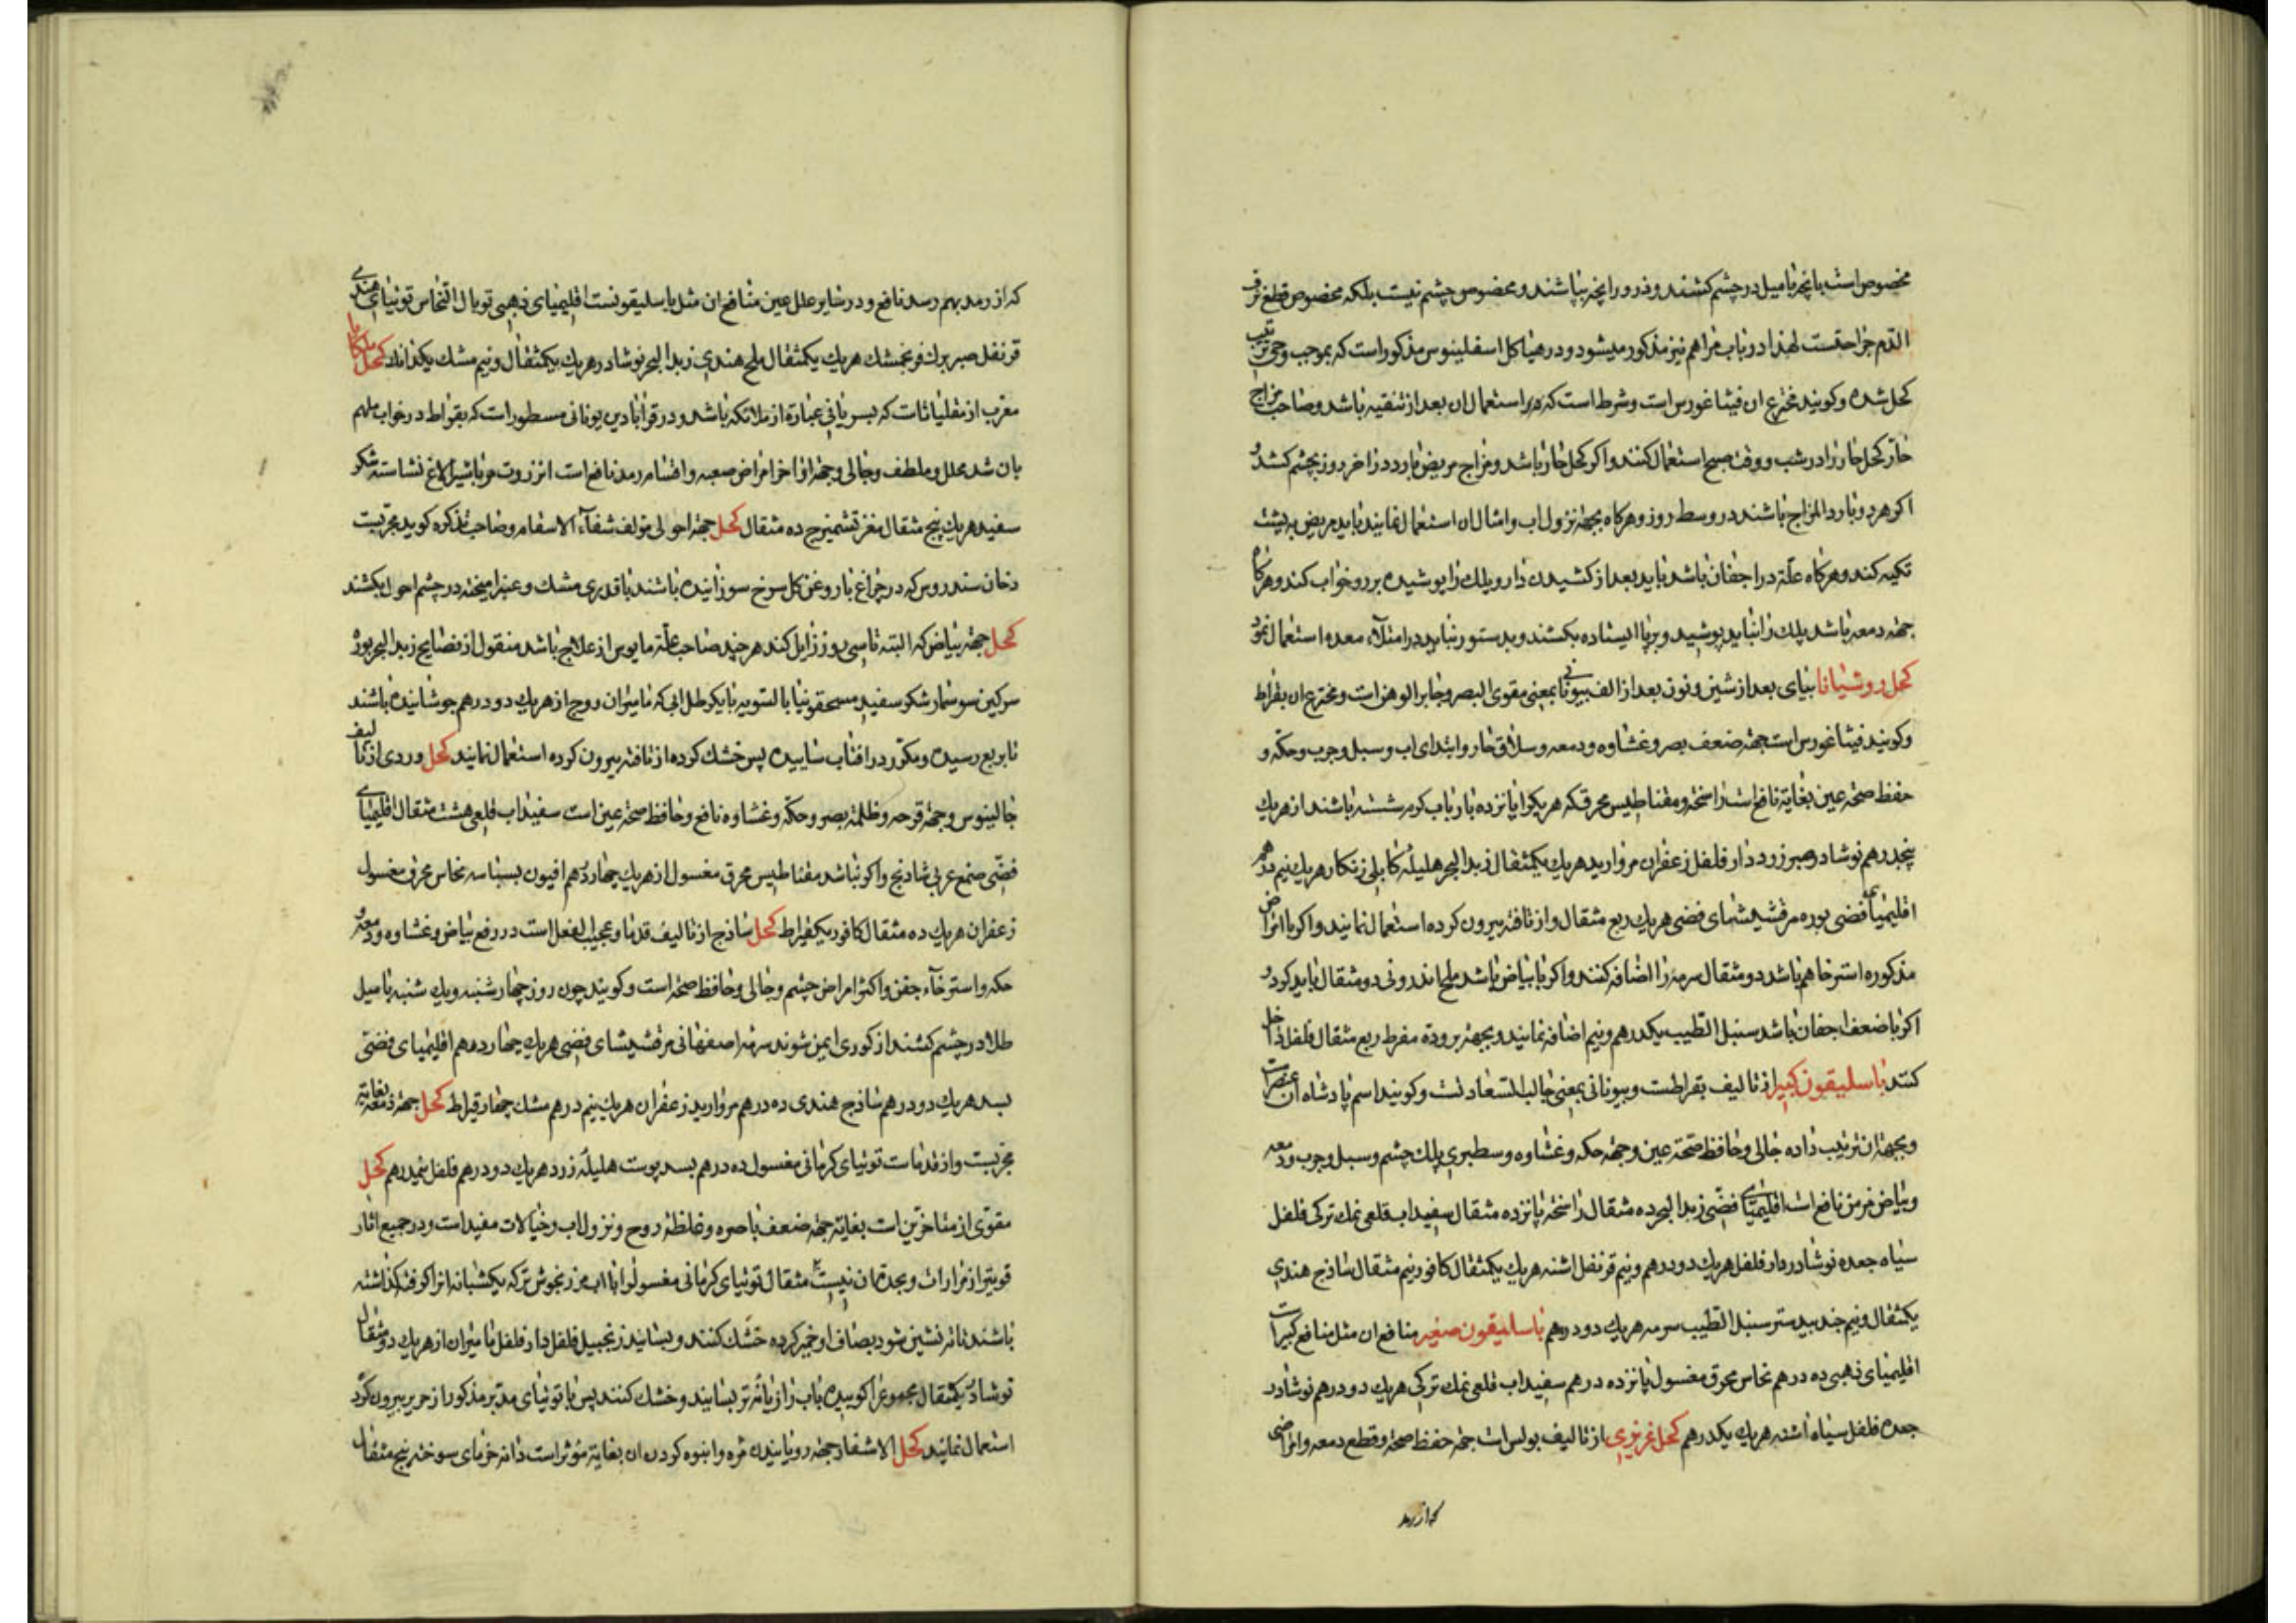 مخصوص است بانچه با میل در چشم کشند و ذرور را بچه بپاشند و مخصوص چشم نیست بلکه مخصوص قطع نزف
الدم جراحتست لهذا در باب مراهم نیز مذکور میشود و در هیاکل اسقلینوس مذکور است که بموجب وحی ترتیب
کحل شده و کویند مخترع ان فیثاغورس است و شرط است که در استعمال ان بعد از تنقیه باشد و صاحب مزاج
حار کحل حار را در شب و وقت صبح استعمال کنند و اکر کحل حار باشد و مزاج مریض بارد در اخر روز بچشم کشند و
اکر هر دو بارد المزاج باشند در وسط روز و هرکاه بجهة نزول اب و امثال ان استعمال نمایند باید مریض به پشت
تکیه کند و هرکاه علة در اجفان باشد باید بعد از کشیدن دارو پلك را پوشیده بر رو خواب کند و هرکاه
جهة دمعه باشد پلك را نباید پوشید و برپا ایستاده بکشند و بدستور نباید در امتلاء معده استعمال نمود
کحل روشنایا بیای بعد از شین و نون بعد از الف بیونانی بمعنی مقوی البصر و جابر الوهن است و مخترع ان بقراط
و کویند فیثاغورس است جهة ضعف بصر و غشاوه و دمعه و سلاق حار و ابتدای اب و سبل و جرب و حکه و
حفظ صحة عین بغایة نافع است راسخته و مقناطیس محرق که هریکرا پانزده بار باب کرم شسته باشند از هریك
پنجدرهم نوشادر صبر زرد دار فلفل زعفران مروارید هریك یکمثقال زبد البحر هلیله کابلی زنکار هریك نیم درهم
اقلیمیای فضی بوره مرقشیشای فضی هریك ربع مثقال و از تافته بیرون کرده استعمال نمایند و اکر با امراض
مذکوره استرخا هم باشد دو مثقال سرمه را اضافه کنند و اکر با بیاض باشد ملح اندرونی دو مثقال باید کرد و
اکر با ضعف اجفان باشد سنبل الطیب یکدرهم و نیم اضافه نمایند و بجهة برودة مفرط ربع مثقال فلفل داخل
کنند باسلیقون کبیر از تالیف بقراطست و بیونانی بمعنی جالب السعادتست و کویند اسم پادشاه ان عصر است
و بجهة ان ترتیب داده جالی و حافظ صحة عین و جهة حکه و غشاوه و سطبری پلك چشم و سبل و جرب و دمعه
و بیاض مزمن نافع است اقلیمیای فضی زبد البحر ده مثقال راسخته پانزده مثقال سفیداب قلعی نمك ترکی فلفل
سیاه جعده نوشادر دار فلفل هریك دو درهم و نیم قرنفل اشنه هریك یکمثقال کافور نیم مثقال ساذج هندی
یکمثقال و نیم جندبیدستر سنبل الطیب سرمه هریك دو درهم باسلیقون صغیر منافع ان مثل منافع کبیر است
اقلیمیای ذهبی ده درهم نحاس محرق مغسول پانزده درهم سفیداب قلعی نمك ترکی هریك دو درهم نوشادر
جعده فلفل سیاه اشنه هریك یکدرهم کحل غریزی از تالیف بولس است جهة حفظ صحة و قطع دمعه و امراضی
که از رمد
که از رمد بهم رسد نافع و در سایر علل عین منافع ان مثل باسلیقونست اقلیمیای ذهبی توبال النحاس توتیای هندی
قرنفل صبر برك فرنجمشك هریك یکمثقال ملح هندی زبد البحر نوشادر هریك یکمثقال و نیم مشك یکدانك کحل ملکایا
معرب از مقلیاثات که بسریانی عبارة از ملائکه باشد و در قرابادین یونانی مسطور است که بقراط در خواب ملهم
بان شد محلل و ملطف و جالی و جهة اواخر امراض صعبه و اقسام رمد نافع است انزروت مربا بشیر الاغ نشاسته شکر
سفید هریك پنج مثقال مغز تشمیزج ده مثقال کحل جهة احولی مولف شفاء الاسقام و صاحب تذکره کوید مجربست
دخان سندروس که در چراغ با روغن کل سرخ سوزانیده باشند با قدری مشك و عنبر امیخته در چشم احول بکشند
کحل جهة بیاض که البته تا سی روز زایل کند هر چند صاحب علة مایوس از علاج باشد منقول از نصایح زبد البحر بوره
سرکین سوسمار شکر سفید مسحقونیا بالسویه با یکرطل ابی که مامیران و وج از هریك دو درهم جوشانیده باشند
تا بربع رسیده و مکرر در افتاب ساییده پس خشك کرده از تافته بیرون کرده استعمال نمایند کحل وردی از تالیف
جالینوس و جهة قرحه و ظلمة بصر و حکه و غشاوه نافع و حافظ صحة عین است سفیداب قلعی هشت مثقال اقلیمیای
فضی صمغ عربی شادنج و اکر نباشد مقناطیس محرق مغسول از هریك چهار درهم افیون بسباسه نحاس محرق مغسول
زعفران هریك ده مثقال کافور یکقیراط کحل ساذج از تالیف قدما و عجیب الفعل است در رفع بیاض و غشاوه و دمعه و
حکه و استرخاء جفن و اکثر امراض چشم و جالی و حافظ صحة است و کویند چون روز چهارشنبه و یك شنبه با میل
طلا در چشم کشند از کوری ایمن شوند سرمه اصفهانی مرقشیشای فضی هریك چهار درهم اقلیمیای فضی
بسد هریك دو درهم ساذج هندی ده درهم مروارید زعفران هریك نیم درهم مشك چهار قیراط کحل جهة دمعه بغایة
مجربست و از قدماست توتیای کرمانی مغسول ده درهم بسد پوست هلیله زرد هریك دو درهم فلفل نیمدرهم کحل
مقوی از متاخرین است بغایة جهة ضعف باصره و غلظة روح و نزول اب و خیالات مفید است و در جمیع اثار
قویتر از مرارات و بحدة ان نیست مثقال توتیای کرمانی مغسول را با اب مرزنجوش تر که یکشبانه انرا کوفته کذاشته
باشند تا ته نشین شود بصافی او خمیر کرده خشك کنند و بسایند زنجبیل فلفل دار فلفل مامیران از هریك دو مثقال
نوشادر یکمثقال مجموع را کوبیده باب رازیانه تر بسایند و خشك کنند پس با توتیای مدبر مذکور از حریر بیرون کرده
استعمال نمایند کحل الاشفار جهة رویانیدن مژه و انبوه کردن ان بغایة مؤثر است دانه خرمای سوخته پنج مثقال